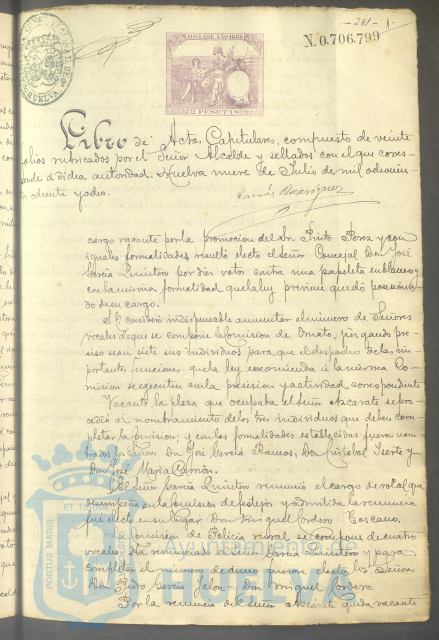 -281- 1.
N.0.706.799
HUELVA
10ª CLASE AÑO 1888
2 PESETAS
Libro de Actas Capitulares, compuesto de veinte
folios rubricados por el Señor Alcalde y sellados con el que corres-
ponde a dicha autoridad. Huelva nueve de Julio de mil ochocien-
tos ochenta y ocho.
cargo vacante por la promocion del Sr. Pinto Perez y con
iguales formalidades resultó electo el Señor Concejal Don José
García Quintero por diez votos contra una papeleta en blanco y
con la misma formalidad que la ley previene quedó posesiona-
do de su cargo.
Se consideró indispensable aumentar el número de Señores
vocales de que se compone la Comision de Ornato, juzgando pre-
ciso sean siete sus individuos para que el despacho de las im-
portantes funciones que la ley encomienda á la misma Co-
mision se ejecuten con la precision y actividad correspondiente
Vacante la plaza que ocupaba el Señor Azcarate se pro-
cedió al nombramiento de los tres individuos que deben com-
pletar la Comision; y con las formalidades establecidas fueron nom-
brados los Señores Don José García Ramos, Don Cristobal Iserte y
Don José María Camon.
El Señor García Quintero renunció el cargo de vocal que
desempeña en la Comision de festejos y admitida la renuncia
fue electo en su lugar Don Miguel Cordero Toscano.
La Comision de Policía rural se compone de cuatro
vocales. Ha renunciado el Señor García Quintero y para
completar el número de cinco fueron electos los Señores
Don Pedro García Jalon y Don Miguel Cordero.
Por la renuncia del Señor Azcárate queda vacante
PORTUS MARIS ET TERRÆ
Ayuntamiento de
HUELVA